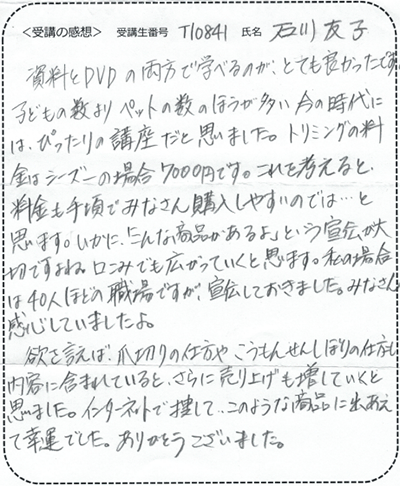 <受講の感想> 受講生番号 T10841 氏名 石川友子
資料とDVDの両方で学べるのが、とても良かったです。
子どもの数よりペットの数のほうが多い今の時代に
は、ぴったりの講座だと思いました。トリミングの料
金はシーズーの場合7000円です。これを考えると、
料金も手頃でみなさん購入しやすいのでは…と
思います。いかに、「こんな商品があるよ」という宣伝が大
切ですよね。口こみでも広がっていくと思います。私の場合
は40人ほどの職場ですが、宣伝しておきました。みなさん
感心していましたよ。
欲を言えば、爪切りの仕方やこうもんせんしぼりの仕方も
内容に含まれていると、さらに売り上げも増していくと
思いました。インターネットで捜して、このような商品に出あえ
て幸運でした。ありがとうございました。